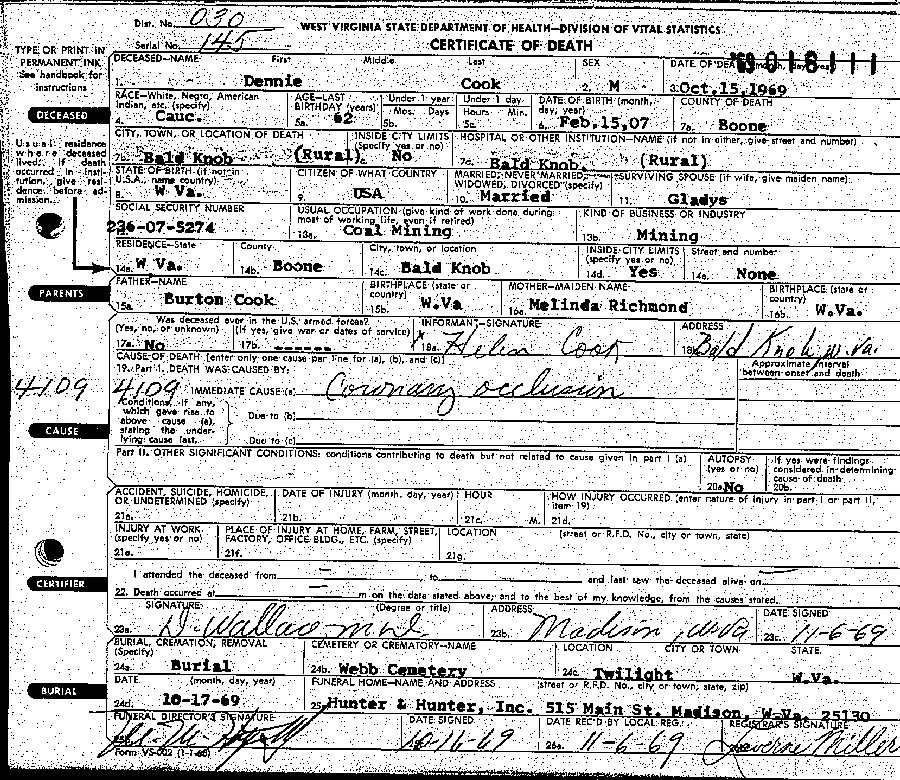 Dist. No. 030
WEST VIRGINIA STATE DEPARTMENT OF HEALTH—DIVISION OF VITAL STATISTICS
Serial No. 145
CERTIFICATE OF DEATH
TYPE OR PRINT IN PERMANENT INK See handbook for instructions
DECEASED—NAME First Middle Last SEX DATE OF DEATH (month, day, year)
1. Dennie Cook 2. M 3. Oct. 15, 1969
DECEASED
RACE—White, Negro, American Indian, etc. (specify) AGE—LAST BIRTHDAY (years) Under 1 year Under 1 day DATE OF BIRTH (month, day, year) COUNTY OF DEATH
4. Cauc. 5a. 62 5b. Mos. Days 5c. Hours Min. 6. Feb. 15, 07 7a. Boone
CITY, TOWN, OR LOCATION OF DEATH INSIDE CITY LIMITS (Specify yes or no) HOSPITAL OR OTHER INSTITUTION—NAME (if not in either, give street and number)
7b. Bald Knob (Rural) No 7d. Bald Knob (Rural)
Usual residence where deceased lived: If death occurred in institution, give residence before admission.
STATE OF BIRTH (if not in U.S.A., name country) CITIZEN OF WHAT COUNTRY MARRIED, NEVER MARRIED, WIDOWED, DIVORCED (specify) SURVIVING SPOUSE (if wife, give maiden name)
8. W Va. 9. USA 10. Married 11. Gladys
SOCIAL SECURITY NUMBER USUAL OCCUPATION (give kind of work done during most of working life, even if retired) KIND OF BUSINESS OR INDUSTRY
236-07-5274 13a. Coal Mining 13b. Mining
RESIDENCE—State County City, town, or location INSIDE CITY LIMITS (specify yes or no) Street and number
14a. W Va. 14b. Boone 14c. Bald Knob 14d. Yes 14e. None
PARENTS
FATHER—NAME BIRTHPLACE (state or country) MOTHER—MAIDEN NAME BIRTHPLACE (state or country)
15a. Burton Cook 15b. W.Va 16a. Melinda Richmond 16b. W.Va.
Was deceased ever in the U.S. armed forces? INFORMANT—SIGNATURE ADDRESS
(Yes, no, or unknown) (If yes, give war or dates of service)
17a. No 17b. ------ X 18a. Helen Cook 18b. Bald Knob, W.Va.
CAUSE OF DEATH [enter only one cause per line for (a), (b), and (c)]
19. Part I. DEATH WAS CAUSED BY: Approximate interval between onset and death
4109 4109 IMMEDIATE CAUSE (a) Coronary occlusion
Conditions, if any, which gave rise to above cause (a), stating the underlying cause last.
Due to (b)
CAUSE
Due to (c)
Part II. OTHER SIGNIFICANT CONDITIONS: conditions contributing to death but not related to cause given in part I (a) AUTOPSY (yes or no) If yes were findings considered in determining cause of death
20a. No 20b.
ACCIDENT, SUICIDE, HOMICIDE, OR UNDETERMINED (specify) DATE OF INJURY (month, day, year) HOUR HOW INJURY OCCURRED (enter nature of injury in part I or part II, item 19)
21a. 21b. 21c. M. 21d.
INJURY AT WORK (specify yes or no) PLACE OF INJURY AT HOME, FARM, STREET, FACTORY, OFFICE BLDG., ETC. (specify) LOCATION (street or R.F.D. No., city or town, state)
21e. 21f. 21g.
CERTIFIER
I attended the deceased from to and last saw the deceased alive on
22. Death occurred at m on the date stated above; and to the best of my knowledge, from the causes stated.
SIGNATURE (Degree or title) ADDRESS DATE SIGNED
23a. D. Wallace md 23b. Madison, W Va 23c. 11-6-69
BURIAL, CREMATION, REMOVAL (Specify) CEMETERY OR CREMATORY—NAME LOCATION CITY OR TOWN STATE
24a. Burial 24b. Webb Cemetery 24c. Twilight W.Va.
BURIAL
DATE (month, day, year) FUNERAL HOME—NAME AND ADDRESS (street or R.F.D. No., city or town, state, zip)
24d. 10-17-69 25. Hunter & Hunter, Inc. 515 Main St. Madison, W-Va. 25130
FUNERAL DIRECTOR'S SIGNATURE DATE SIGNED DATE REC'D BY LOCAL REG. REGISTRAR'S SIGNATURE
10-16-69 26a. 11-6-69 Laverne Miller
Form VS-002 (1-1-68)